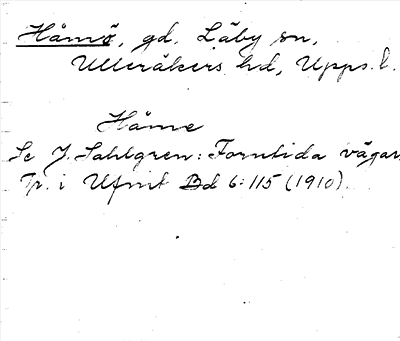 Håmö, gd. Läby sn,
Ulleråkers hd, Upps. l.
Håme
Se J. Sahlgren: Forntida vägar.
Tr. i Ufmt Bd 6:115 (1910).